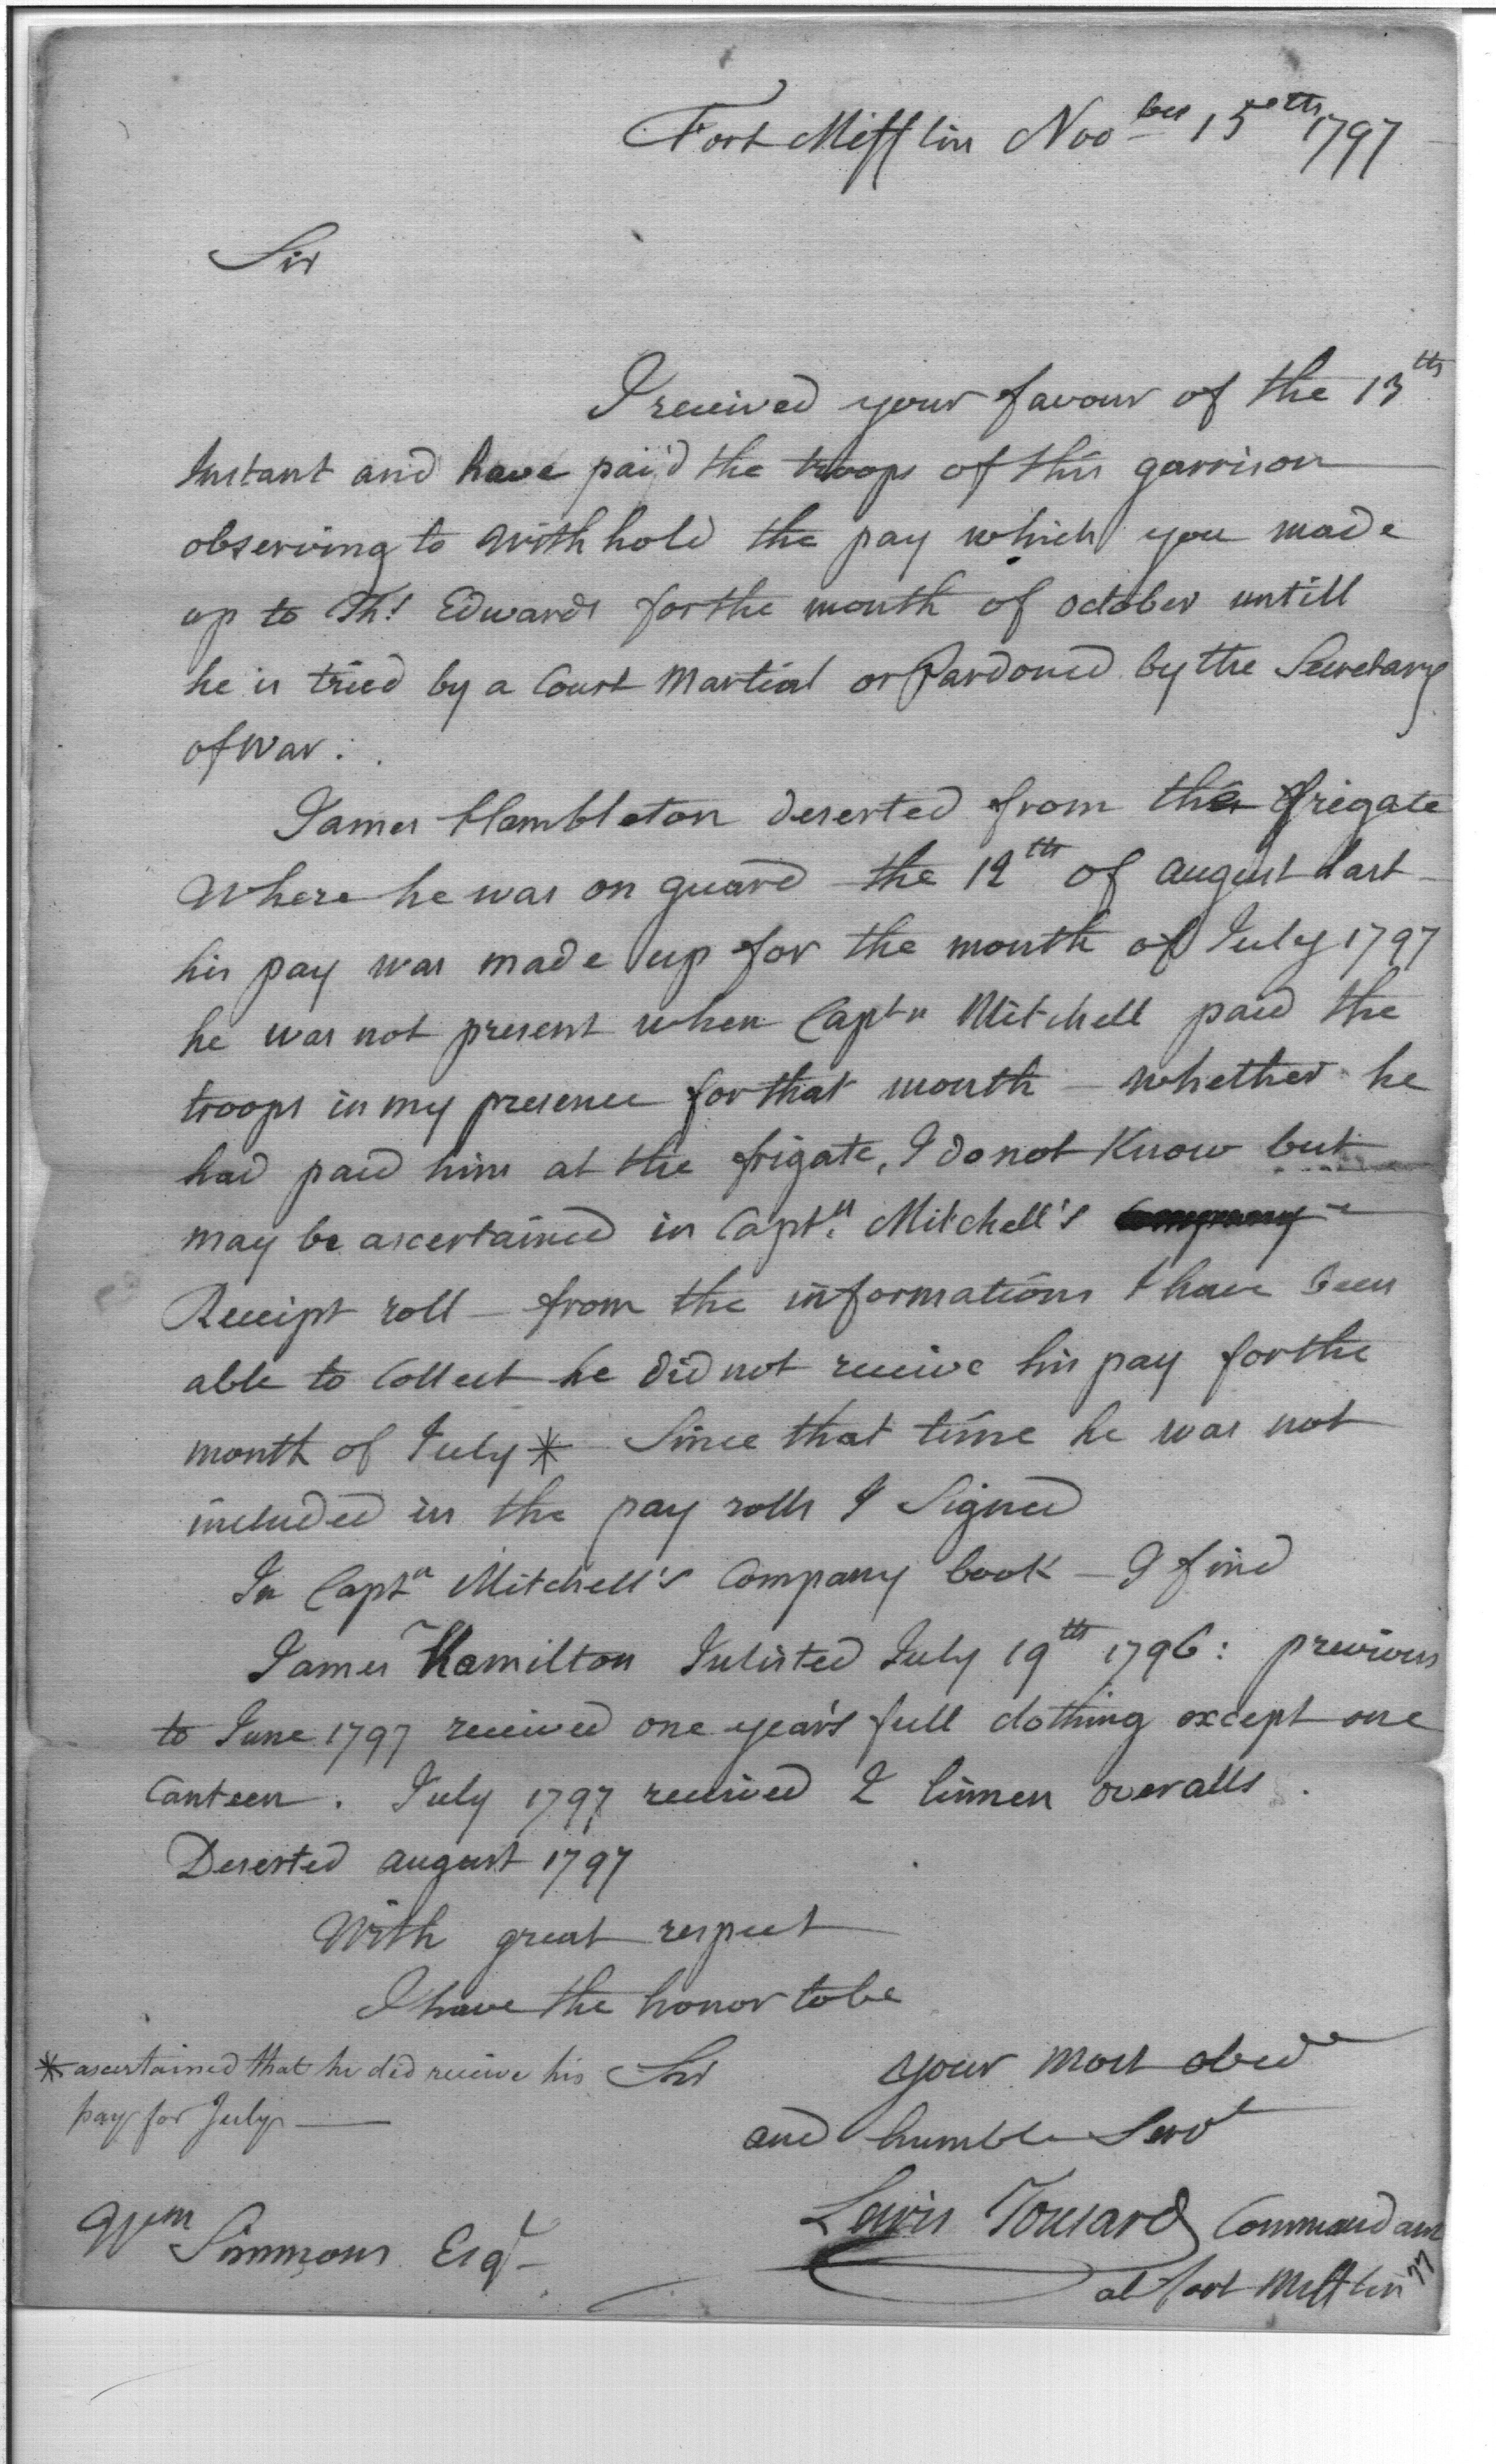 Fort Mifflin Nov ber 15th 1797
Sir
I received your favour of the 13th
Instant and have pai'd the troops of this garrison
observing to withhold the pay which you made
up to Ths Edwards for the month of october untill
he is tried by a Court Martial or Pardoned by the Secretary
of War.
James Hambleton deserted from the frigate
Where he was on guard the 12th of august last
his pay was made up for the month of July 1797
he was not present when Captn Mitchell paid the
troops in my presence for that month - whether he
had paid him at the frigate, I do not Know but
may be ascertained in Captn Mitchell's company
Receipt roll - from the informations I have been
able to Collect he did not receive his pay for the
month of July * Since that time he was not
included in the pay rolls I Signed
In Captn Mitchell's Company book - I find
James Hamilton Inlisted July 19th 1796: previous
to June 1797 received one year's full clothing except one
Canteen. July 1797 received 2 linnen overalls.
Deserted august 1797
With great respect
I have the honor to be
Sir your most obed
* ascertained that he did receive his
pay for July
and humble Servt
Lewis Tousard Commandant
at fort Mifflin
Wm Simmons Esqr